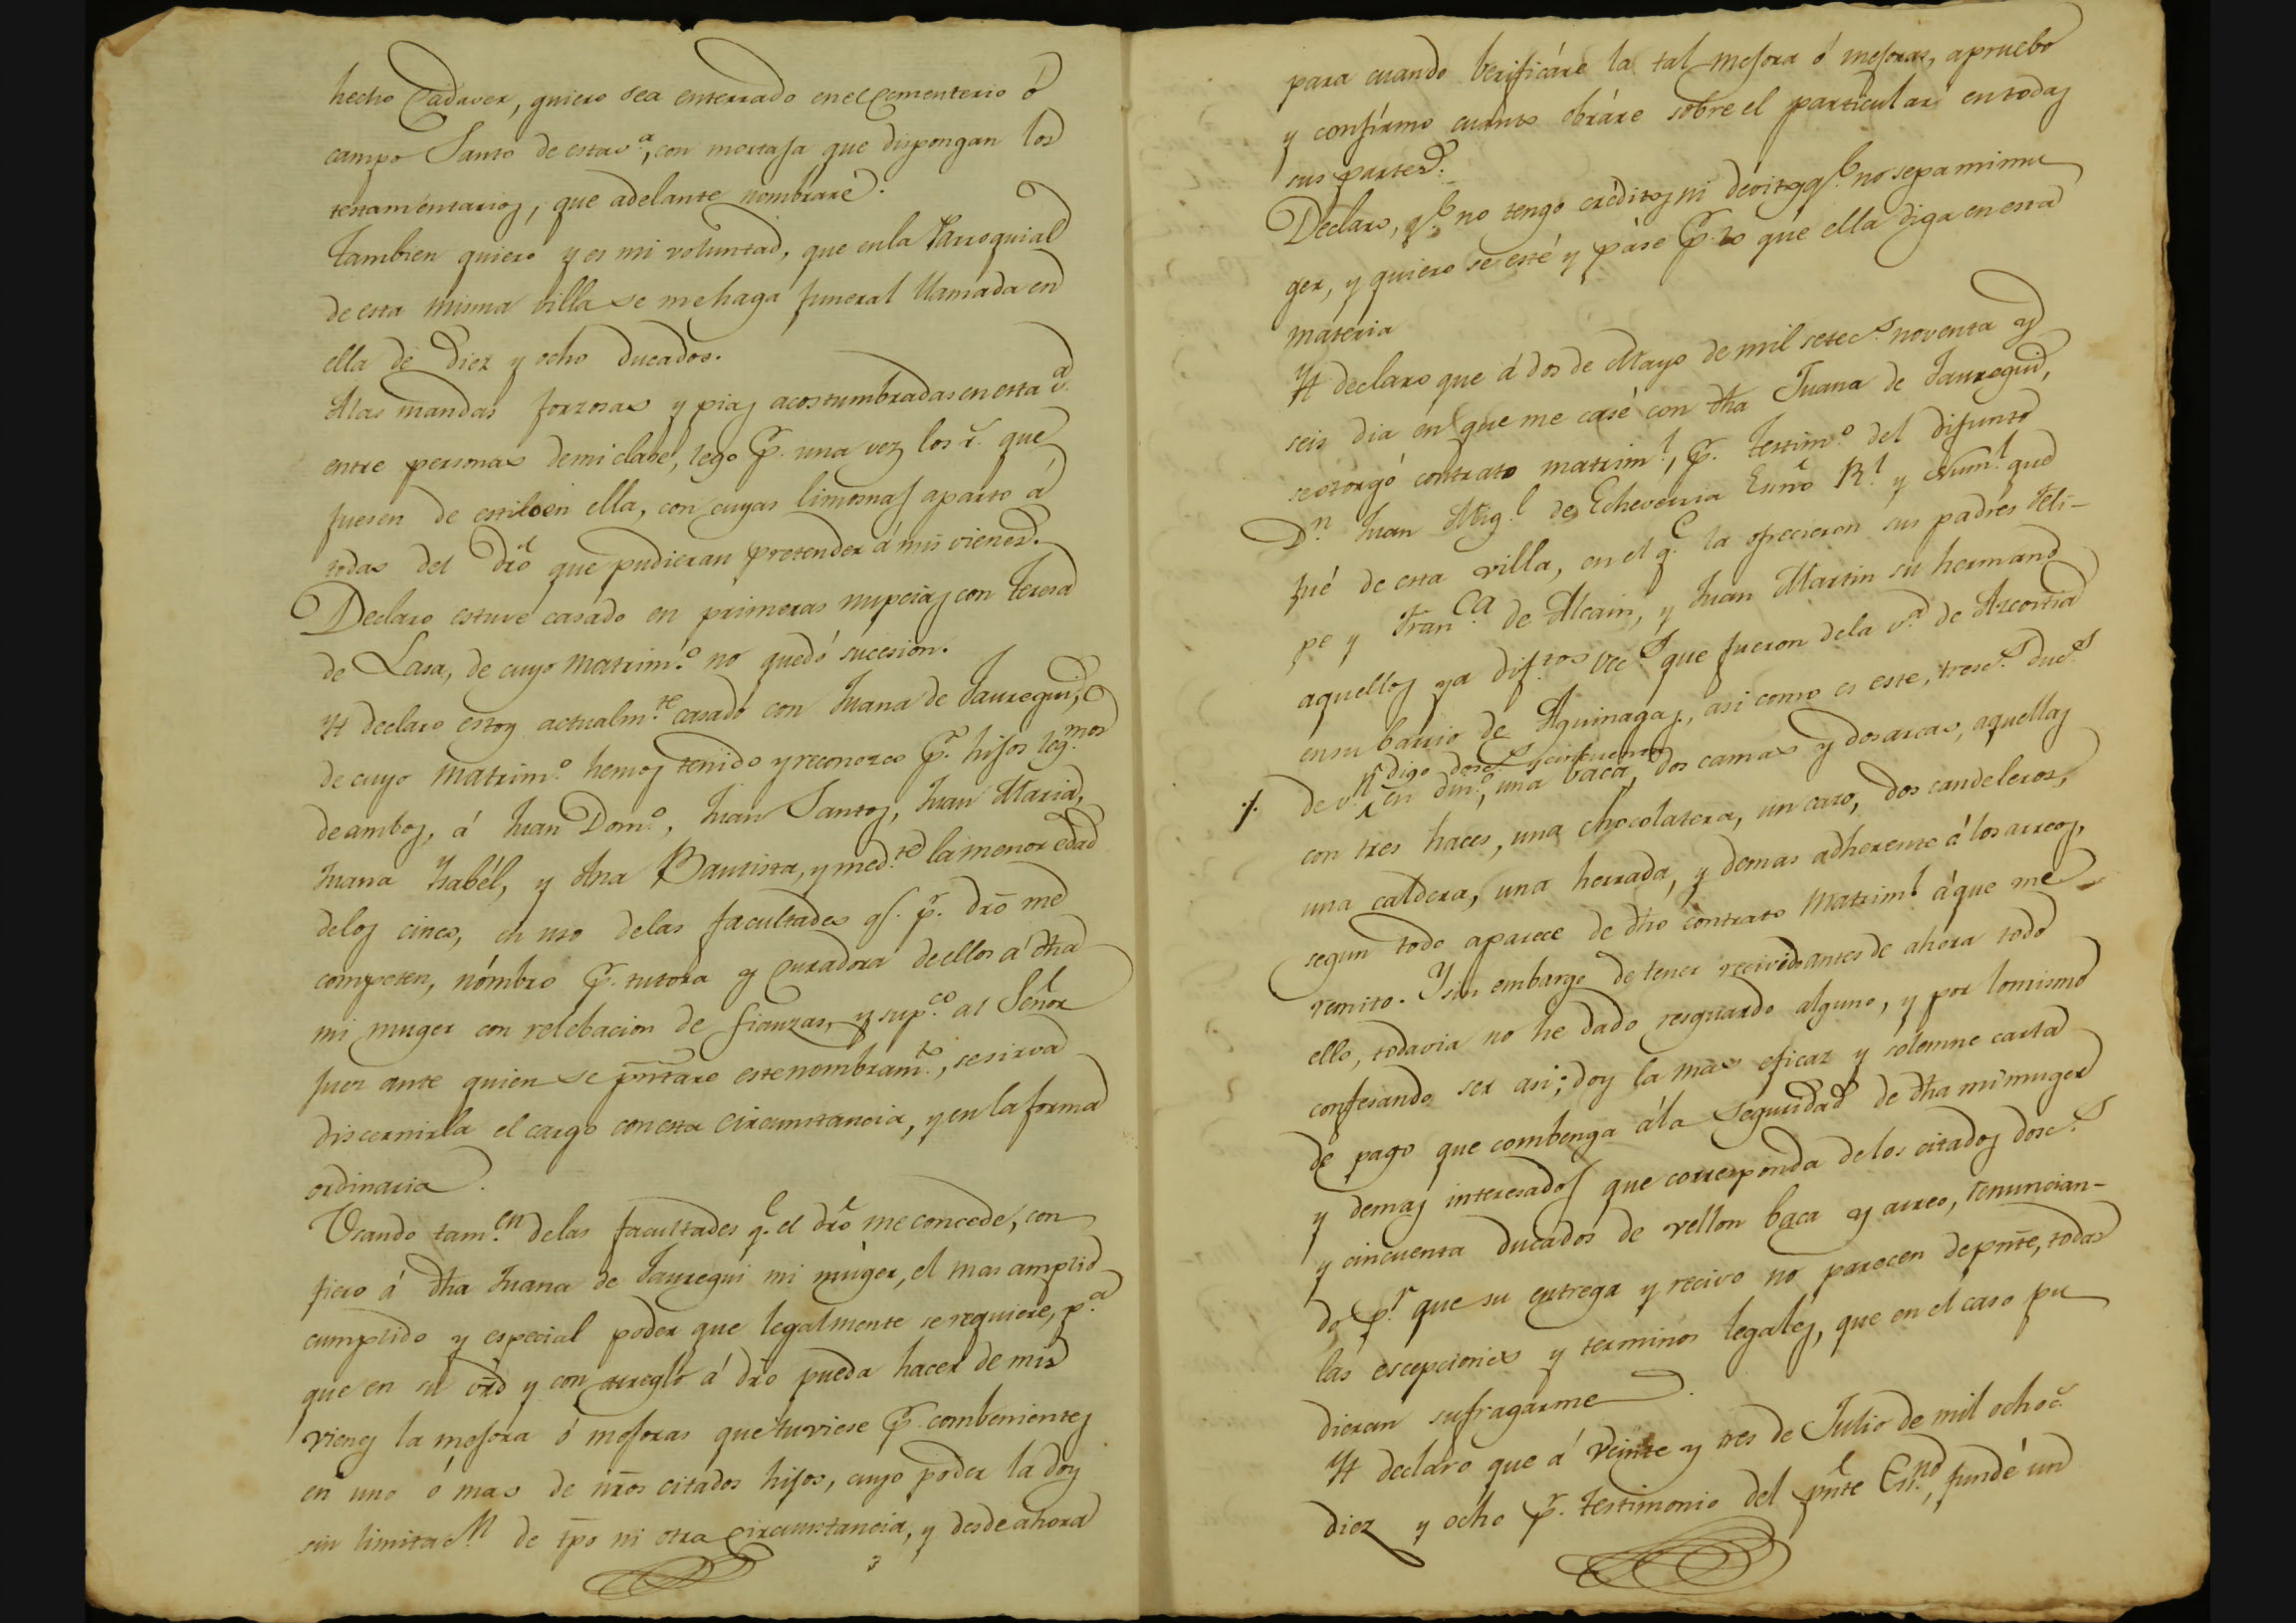 hecho Cadaver, quiero sea enterrado en el Cementerio ó
campo Santo de esta v.ª, con mortaja que dispongan los
testamentarios, que adelante nombraré.
Tambien quiero y es mi voluntad, que en la Parroquial
de esta misma villa se me haga funeral llamada en
ella de Diez y ocho ducados.
A las mandas forzosas y pias acostumbradas en esta v.ª
entre personas de mi clase, lego p.r una vez los r.s que
fuesen de estilo en ella, con cuyas limosnas aparto á
todas del dro que pudieran pretender á mis vienes.
Declaro estuve casado en primeras nupcias con Teresa
de Lasa, de cuyo matrim.º no quedó sucesion.
Yt declaro estoy actualm.te casado con Juana de Jauregui,
de cuyo matrim.º hemos tenido y reconozco p.r hijos leg.mos
de ambos, á Juan Dom.º, Juan Santos, Juan Maria,
Juana Ysabél, y Ana Bautista, y med.te la menor edad
de los cinco, en uso de las facultades q.e p.r dro me
competen, nómbro p.r tutora y curadora de ellos á dha
mi muger con relebacion de fianzas, y sup.co al Señor
Juez ante quien se pntare este nombram.to, se sirva
discernirla el cargo con esta circunstancia, y en la forma
ordinaria.
Usando tam.en de las facultades q.e el dro me concede, con
fiero á dha Juana de Jauregui mi muger, el mas amplio
cumplido y especial poder que legalmente se requiere, p.ª
que en su ord y con arreglo á dro pueda hacer de mis
vienes la mejora ó mejoras que tuviese p.r combenientes
en uno ó mas de nros citados hijos, cuyo poder la doy
sin limitac.n de tpo ni otra circunstancia, y desde ahora
para cuando berificáre la tal mejora ó mejoras, apruebo
y confírmo cuanto obráre sobre el particular en todas
sus partes.
Declaro, q.e no tengo créditos ni devitos q.e no sepa mi mu
ger, y quiero se esté y páse p.r lo que ella diga en esta
materia
Yt declaro que á dos de Mayo de mil setec.s noventa y
seis dia en que me casé con dha Juana de Jauregui,
se otorgó contrato matrim.l, p.r testim.º del difunto
D.n Juan Mig.l de Echeverria Esno R.l y Num.l que
fué de esta villa, en el q.e la ofrecieron sus padres Feli-
pe y Fran.ca de Alcain, y Juan Martin su hermano
aquellos ya dif.tos vec.s que fueron de la v.ª de Azcoitia
en su barrio de Aguinaga, asi como es este, tresc.s duc.s
digo dosc.s y cincuenta
./. de v.n en din.º, una baca, dos camas y dos arcas, aquellas
con tres haces, una chocolatera, un cazo, dos candeleros,
una caldera, una herrada, y demas adherente á los arreos,
segun todo aparece de dho contrato matrim.l á que me
remito. Y sin embargo de tener recivido antes de ahora todo
ello, todavia no he dado resguardo alguno, y por lo mismo
confesando ser asi; doy la mas eficaz y solemne carta
de pago que combenga á la seguridad de dha mi muger
y demas interesados que corresponda de los citados dosc.s
y cincuenta ducados de vellon baca y arreo, renuncian-
do p.r que su entrega y recivo no parecen de pnte, todas
las escepciones y terminos legales, que en el caso pu
dieran sufragarme.
Yt declaro que á veinte y tres de Julio de mil ochoc.s
diez y ocho p.r testimonio del pnte Es.no, fundé un